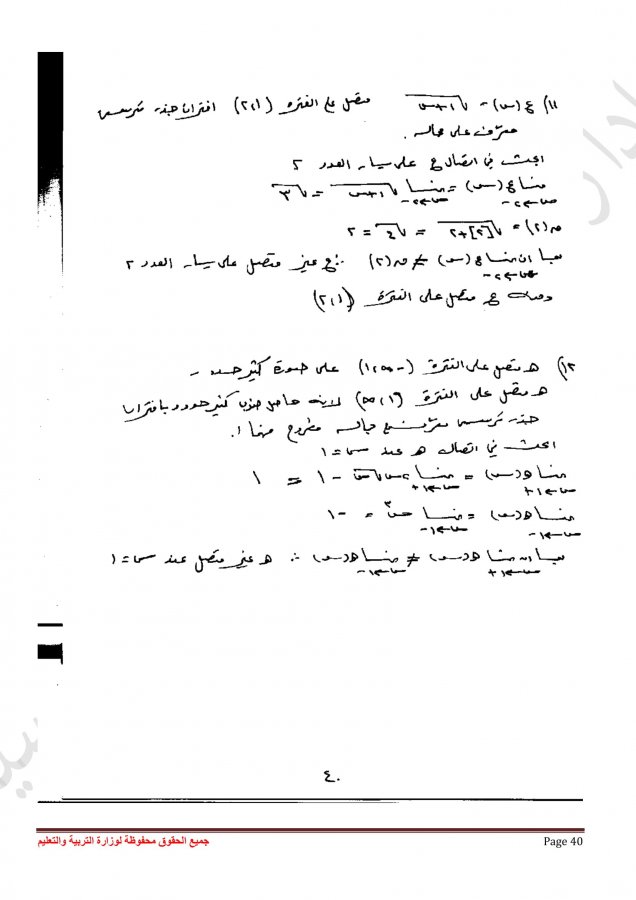 ١١) ع(س) = √[س]+٢ متصل على الفترة (١،٢) اقتران جذر تربيعي
معرّف على مجاله.
ابحث في اتصال ع على يسار العدد ٢
نهــا ع(س) = نهــا √١+٢ = √٣
س←٢- س←٢-
(٢) = √[٢]+٢ = √٤ = ٢
بما ان نهــا ع(س) ≠ (٢) ∴ ع غير متصل على يسار العدد ٢
س←٢-
ومنه ع متصل على الفترة (١،٢)
١٢) هـ متصل على الفترة (-∞،١) على صورة كثير حدود
هـ متصل على الفترة (١،∞) لانه حاصل ضرب كثير حدود باقتران
جذر تربيعي معرّف على مجاله مطروح منها ١.
ابحث في اتصال هـ عند س=١
نهــا هـ(س) = نهــا ٢س√س - ١ = ١
س←١+ س←١+
نهــا هـ(س) = نهــا = -١
س←١- س←١-
بما ان نهــا هـ(س) ≠ نهــا هـ(س) ∴ هـ غير متصل عند س=١
س←١+ س←١-
٤٠
جميع الحقوق محفوظة لوزارة التربية والتعليم
Page 40